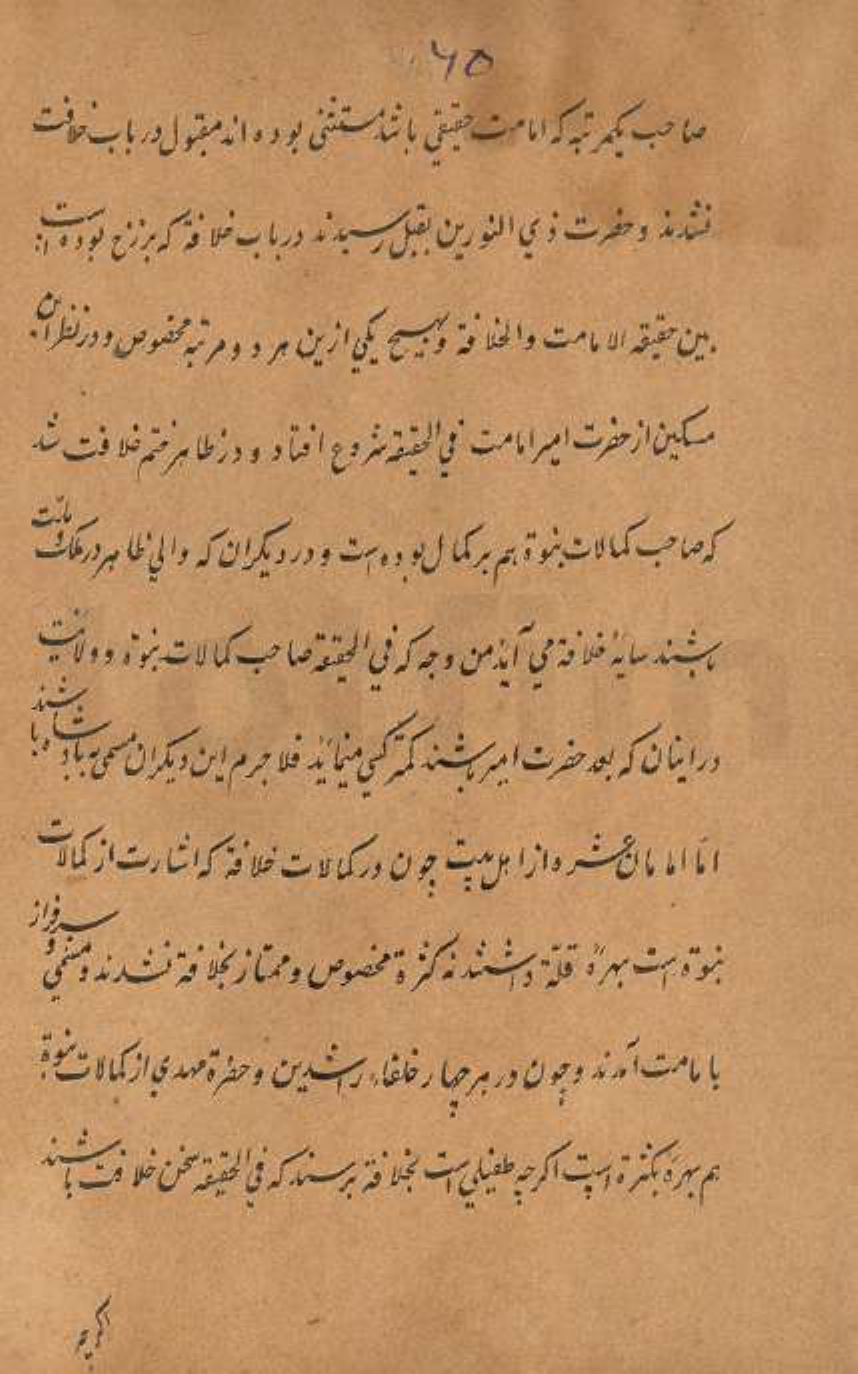 ٦٥
صاحب یکمرتبه که امامت حقیقي باشد مستثنی بوده اند مقبول در باب خلافت
نشدند و حضرت ذي النورین بقبل رسیدند در باب خلافة که برزخ بوده است
بین حقیقه الامامت والخلافة و بهیچ یکي ازین هر دو مرتبه مخصوص و در نظر این
مسکین از حضرت امیر امامت في الحقیقة شروع افتاد و در ظاهر ختم خلافت شد
که صاحب کمالات نبوة هم بر کمال بوده است و در دیکران که والي ظاهر در ملک و ملت
باشند سایهٔ خلافة مي آید من وجه که في الحقیقة صاحب کمالات نبوة و ولایت
در اینان که بعد حضرت امیر باشند کمتر کسي مینماید فلا جرم این دیکران مسمی به بادشاه باشند
امّا امامان عشره از اهل بیت چون در کمالات خلافة که اشارت از کمالات
نبوة است بهرهٔ قلّة داشتند نه کثرة مخصوص و ممتاز بخلافة نشدند و مسمي و سرفراز
بامامت آمدند و چون در هر چهار خلفاء راشدین و حضرة مهدي از کمالات نبوة
هم بهرهٔ بکثرة است اکرچه طفیلي است بخلافة برسند که في الحقیقة سخن خلافت باشند